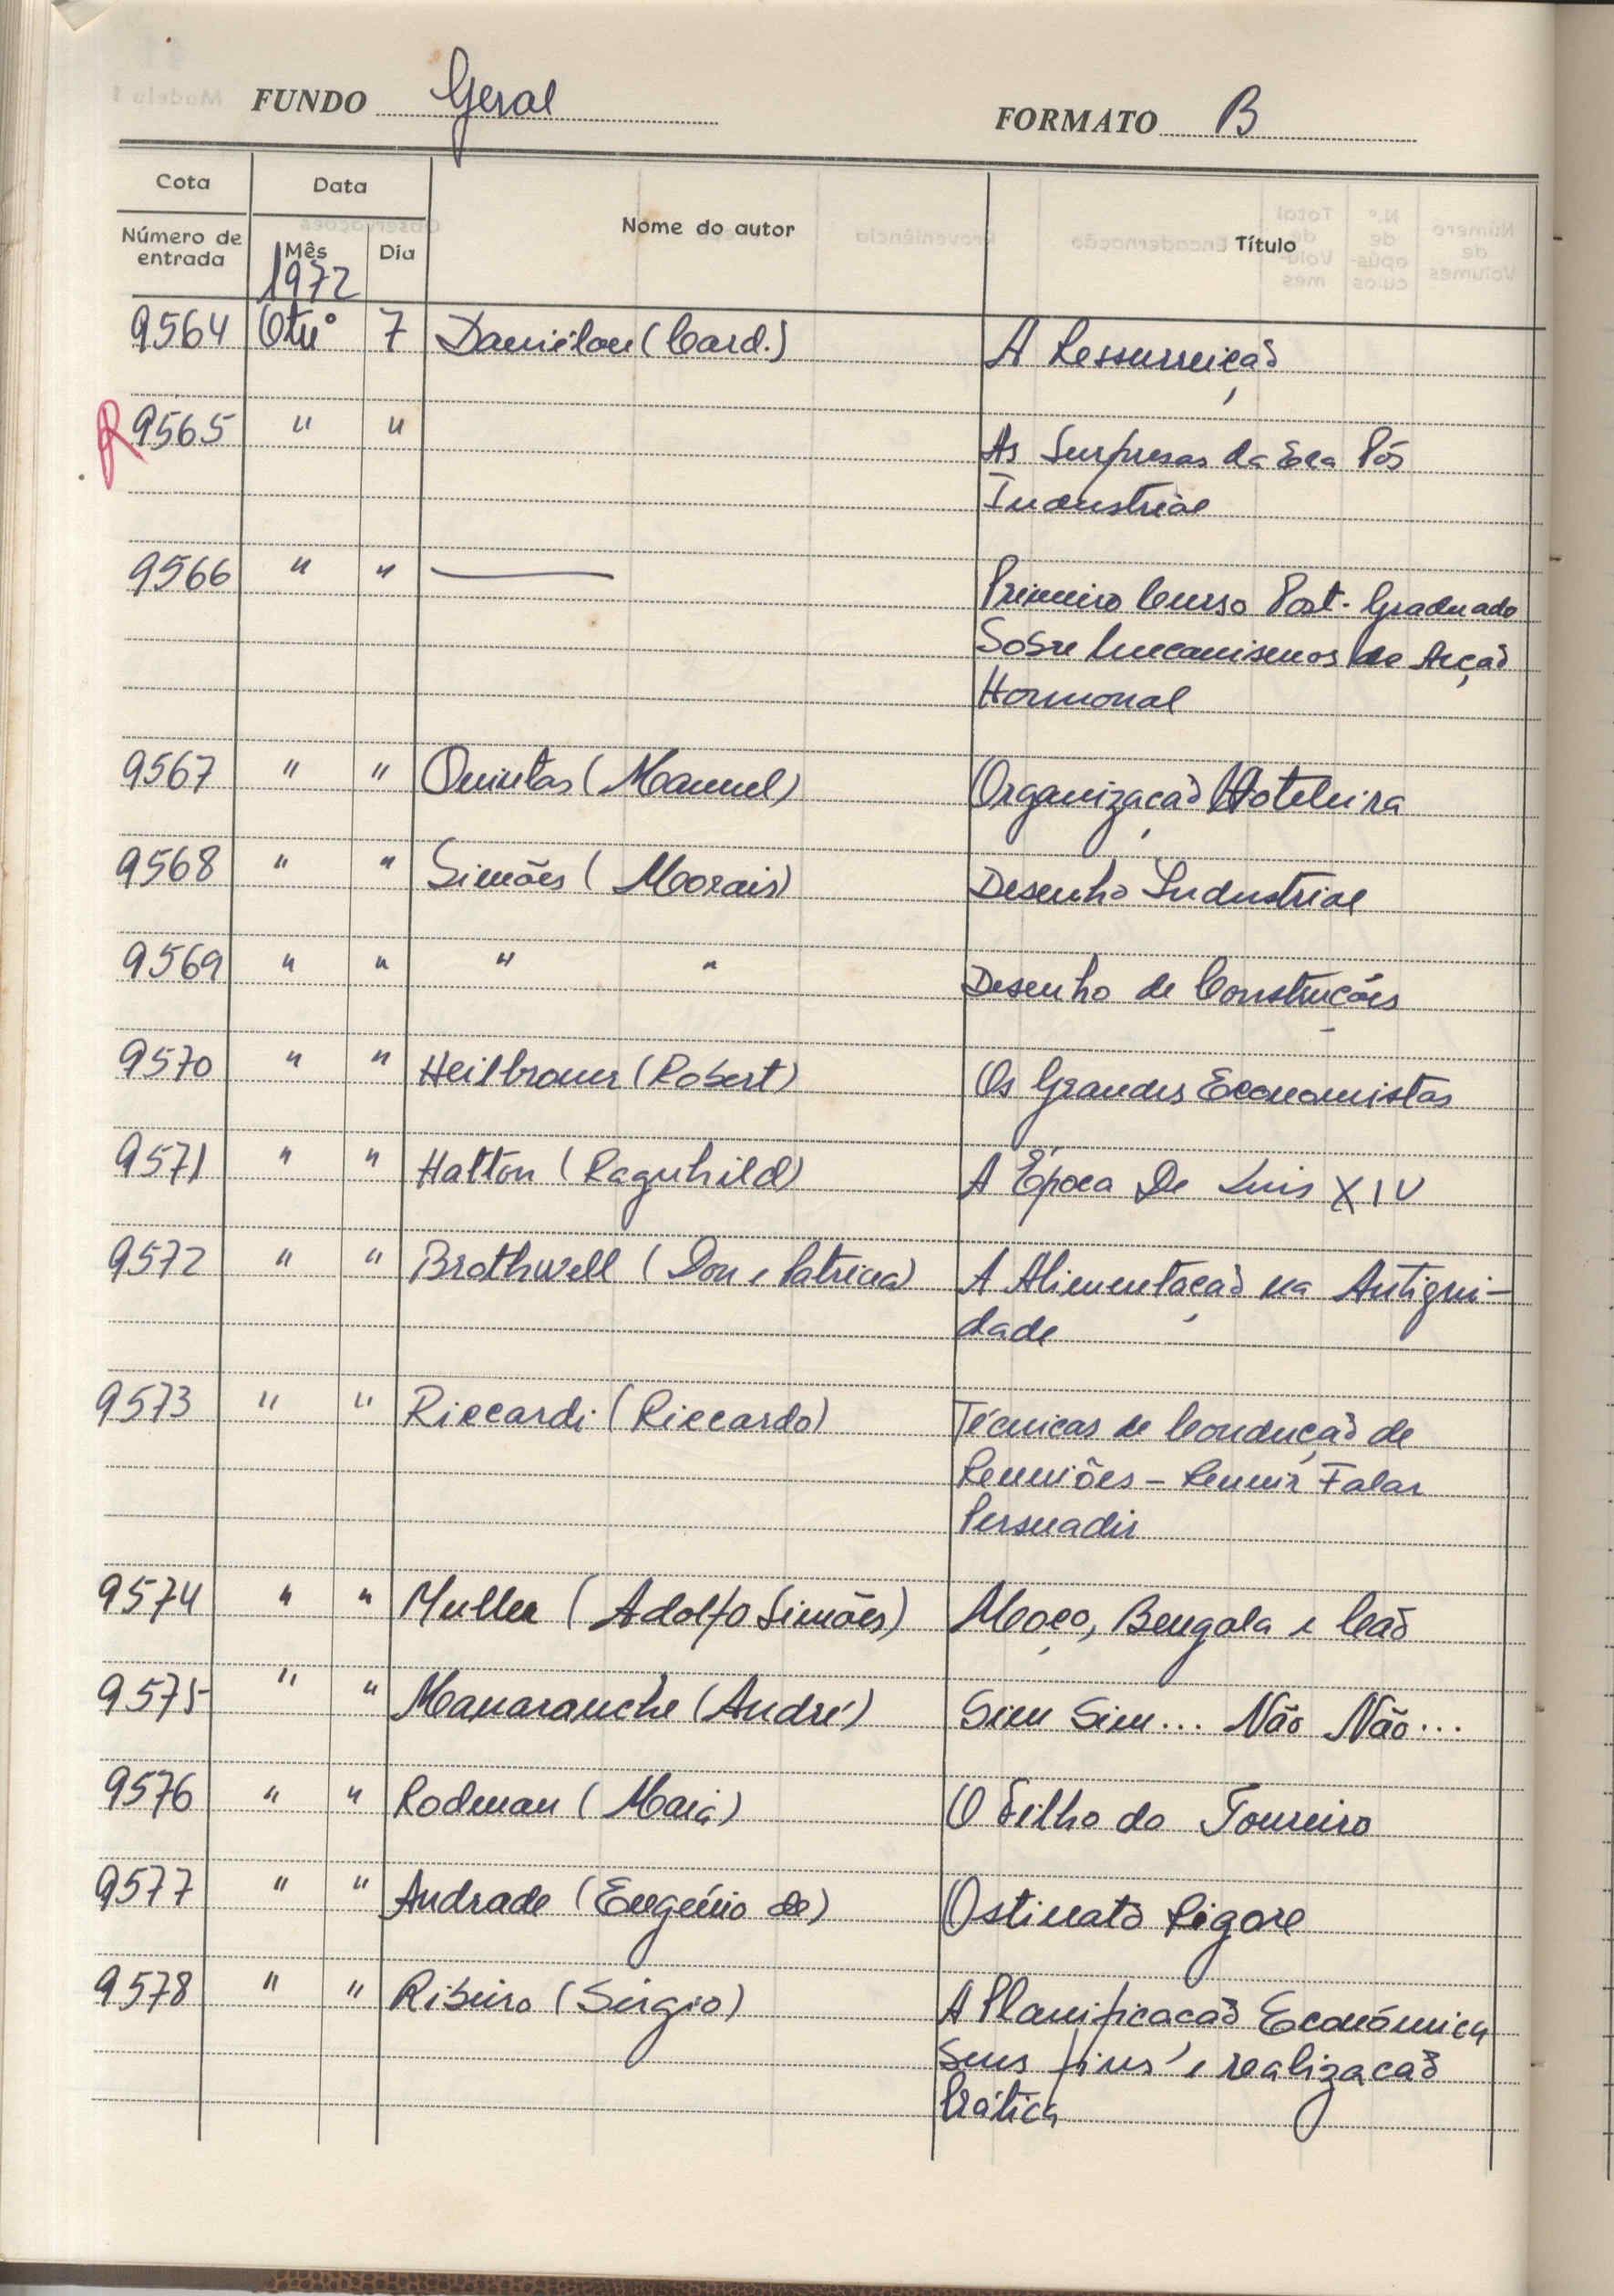 FUNDO Geral FORMATO B
Cota Data Nome do autor Título
Número de entrada Mês Dia
1972
9564 Out.º 7 Daniélou (Card.) A Ressurreição
R 9565 " " As Surpresas da Era Pós
Industrial
9566 " " — Primeiro Curso Post-Graduado
Sobre Mecanismos de Acção
Hormonal
9567 " " Quintas (Manuel) Organização Hoteleira
9568 " " Simões (Morais) Desenho Industrial
9569 " " " " Desenho de Construções
9570 " " Heilbroner (Robert) Os Grandes Economistas
9571 " " Hatton (Ragnhild) A Época De Luis XIV
9572 " " Brothwell (Don e Patricia) A Alimentação na Antigui-
dade
9573 " " Riccardi (Riccardo) Técnicas de Condução de
Reuniões - Reunir Falar
Persuadir
9574 " " Muller (Adolfo Simões) Moço, Bengala e Cão
9575 " " Manaranche (André) Sim Sim... Não Não...
9576 " " Rodman (Maia) O Filho do Toureiro
9577 " " Andrade (Eugénio de) Ostinato Rigore
9578 " " Ribeiro (Sérgio) A Planificação Económica
Seus fins e realização
Prática